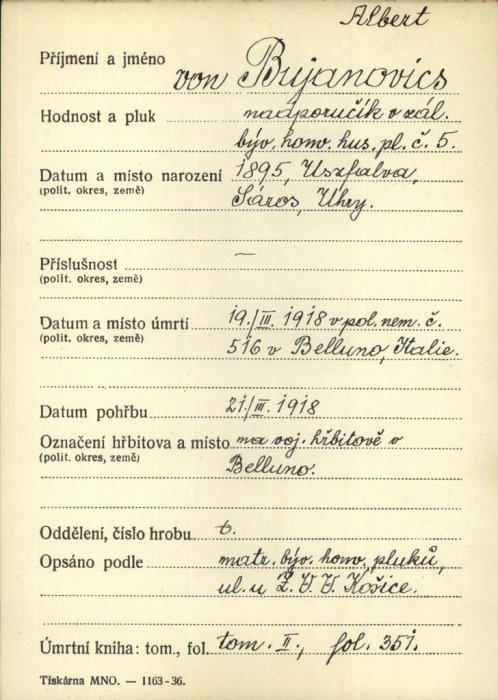 Albert
Příjmení a jméno von Bujanovics
Hodnost a pluk nadporučík v zál.
býv. honv. hus. pl. č. 5.
Datum a místo narození 1895, Uszfalva,
(polit. okres, země) Sáros, Uhry.
Příslušnost —
(polit. okres, země)
Datum a místo úmrtí 19./III. 1918 v pol. nem. č.
(polit. okres, země) 516 v Belluno, Italie.
Datum pohřbu 21/III. 1918
Označení hřbitova a místo na voj. hřbitově v
(polit. okres, země) Belluno.
Oddělení, číslo hrobu 6.
Opsáno podle matr. býv. honv. pluků,
ul. u Z. V. V. Košice.
Úmrtní kniha: tom., fol. tom. II., fol. 351.
Tiskárna MNO. — 1163-36.